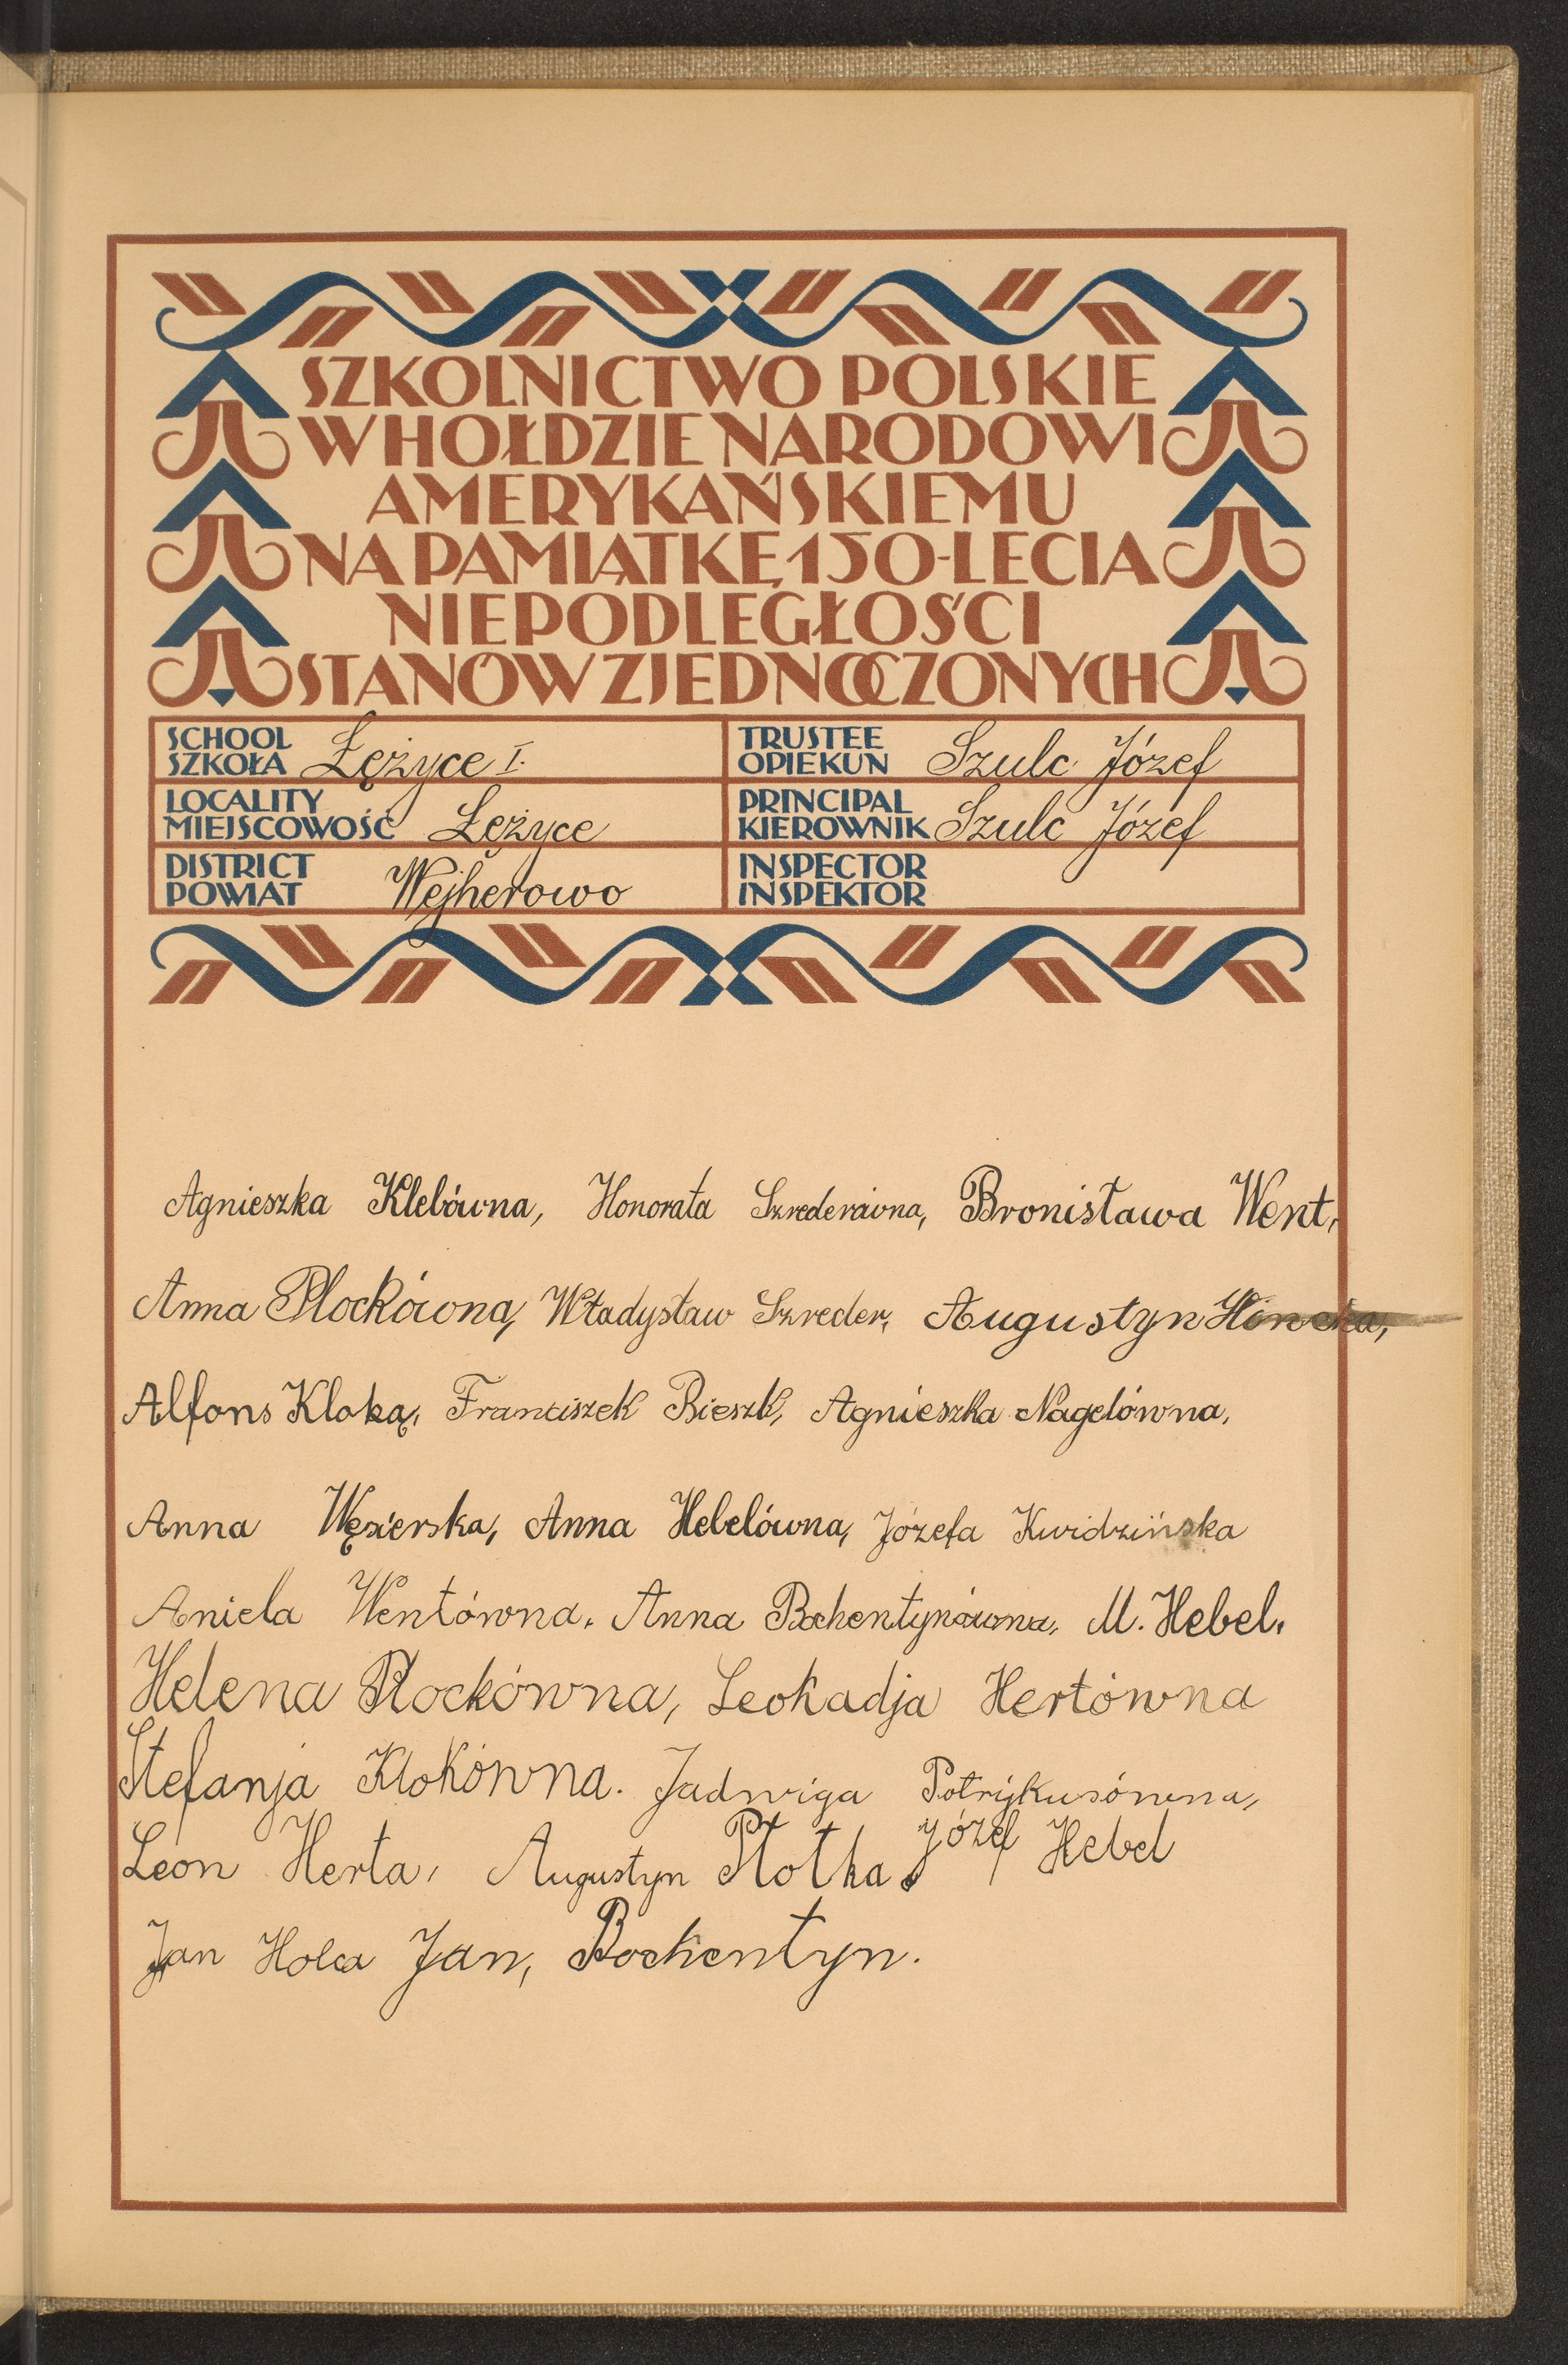 SZKOLNICTWO POLSKIE
W HOŁDZIE NARODOWI
AMERYKAŃSKIEMU
NA PAMIĄTKĘ 150-LECIA
NIEPODLEGŁOŚCI
STANÓW ZJEDNOCZONYCH
SCHOOL
SZKOŁA Łężyce I.
TRUSTEE
OPIEKUN Szulc Józef
LOCALITY
MIEJSCOWOŚĆ Łężyce
PRINCIPAL
KIEROWNIK Szulc Józef
DISTRICT
POWIAT Wejherowo
INSPECTOR
INSPEKTOR
Agnieszka Klebówna, Honorata Szrederówna, Bronisława Went,
Anna Plockówna, Władysław Szreder, Augustyn
Alfons Kloka, Franciszek Bieszk, Agnieszka Nagelówna,
Anna Węsierska, Anna Hebelówna, Józefa Kwidzińska
Aniela Wentówna. Anna Bochentynówna, M. Hebel.
Helena Plockówna, Leokadja Hertówna
Stefanja Klokówna. Jadwiga Potrykusówna,
Leon Herta, Augustyn Płotka. Józef Hebel
Jan Holca Jan, Bochentyn.